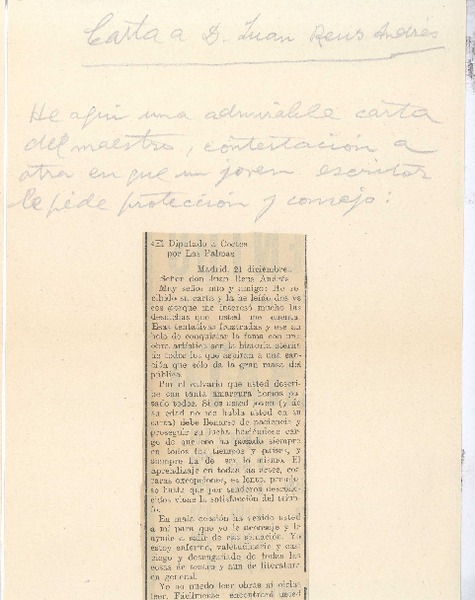 Carta a D. Juan Reus Andrés
He aquí una admirable carta
del maestro, contestación a
otra en que un joven escritor
le pide protección y consejo:
«El Diputado a Cortes
por Las Palmas
Madrid, 21 diciembre.
Señor don Juan Reus Andrés
Muy señor mío y amigo: He re-
cibido su carta y la he leído dos ve-
ces porque me interesó mucho las
desdichas que usted me cuenta.
Esas tentativas frustradas y ese an-
helo de conquistar la fama con una
obra artística son la historia eterna
de todos los que aspiran a una san-
ción que sólo da la gran masa del
público.
Por el calvario que usted descri-
be con tanta amargura hemos pa-
sado todos. Si es usted joven (y de
su edad no me habla usted en su
carta) debe llenarse de paciencia y
proseguir su lucha haciéndose car-
go de que eso ha pasado siempre
en todos los tiempos y países, y
siempre ha de ser lo mismo. El
aprendizaje en todas las artes, con
raras excepciones, es lento, penoso
y hasta que por senderos descono-
cidos viene la satisfacción del triun-
fo.
En mala ocasión ha venido usted
a mí para que yo le aconseje y le
ayude a salir de esa situación. Yo
estoy enfermo, valetudinario y
ciego y desengañado de todas las
cosas de teatro y aun de literatura
en general.
Yo no puedo leer obras ni oírlas
leer. Fácilmente encontrará usted